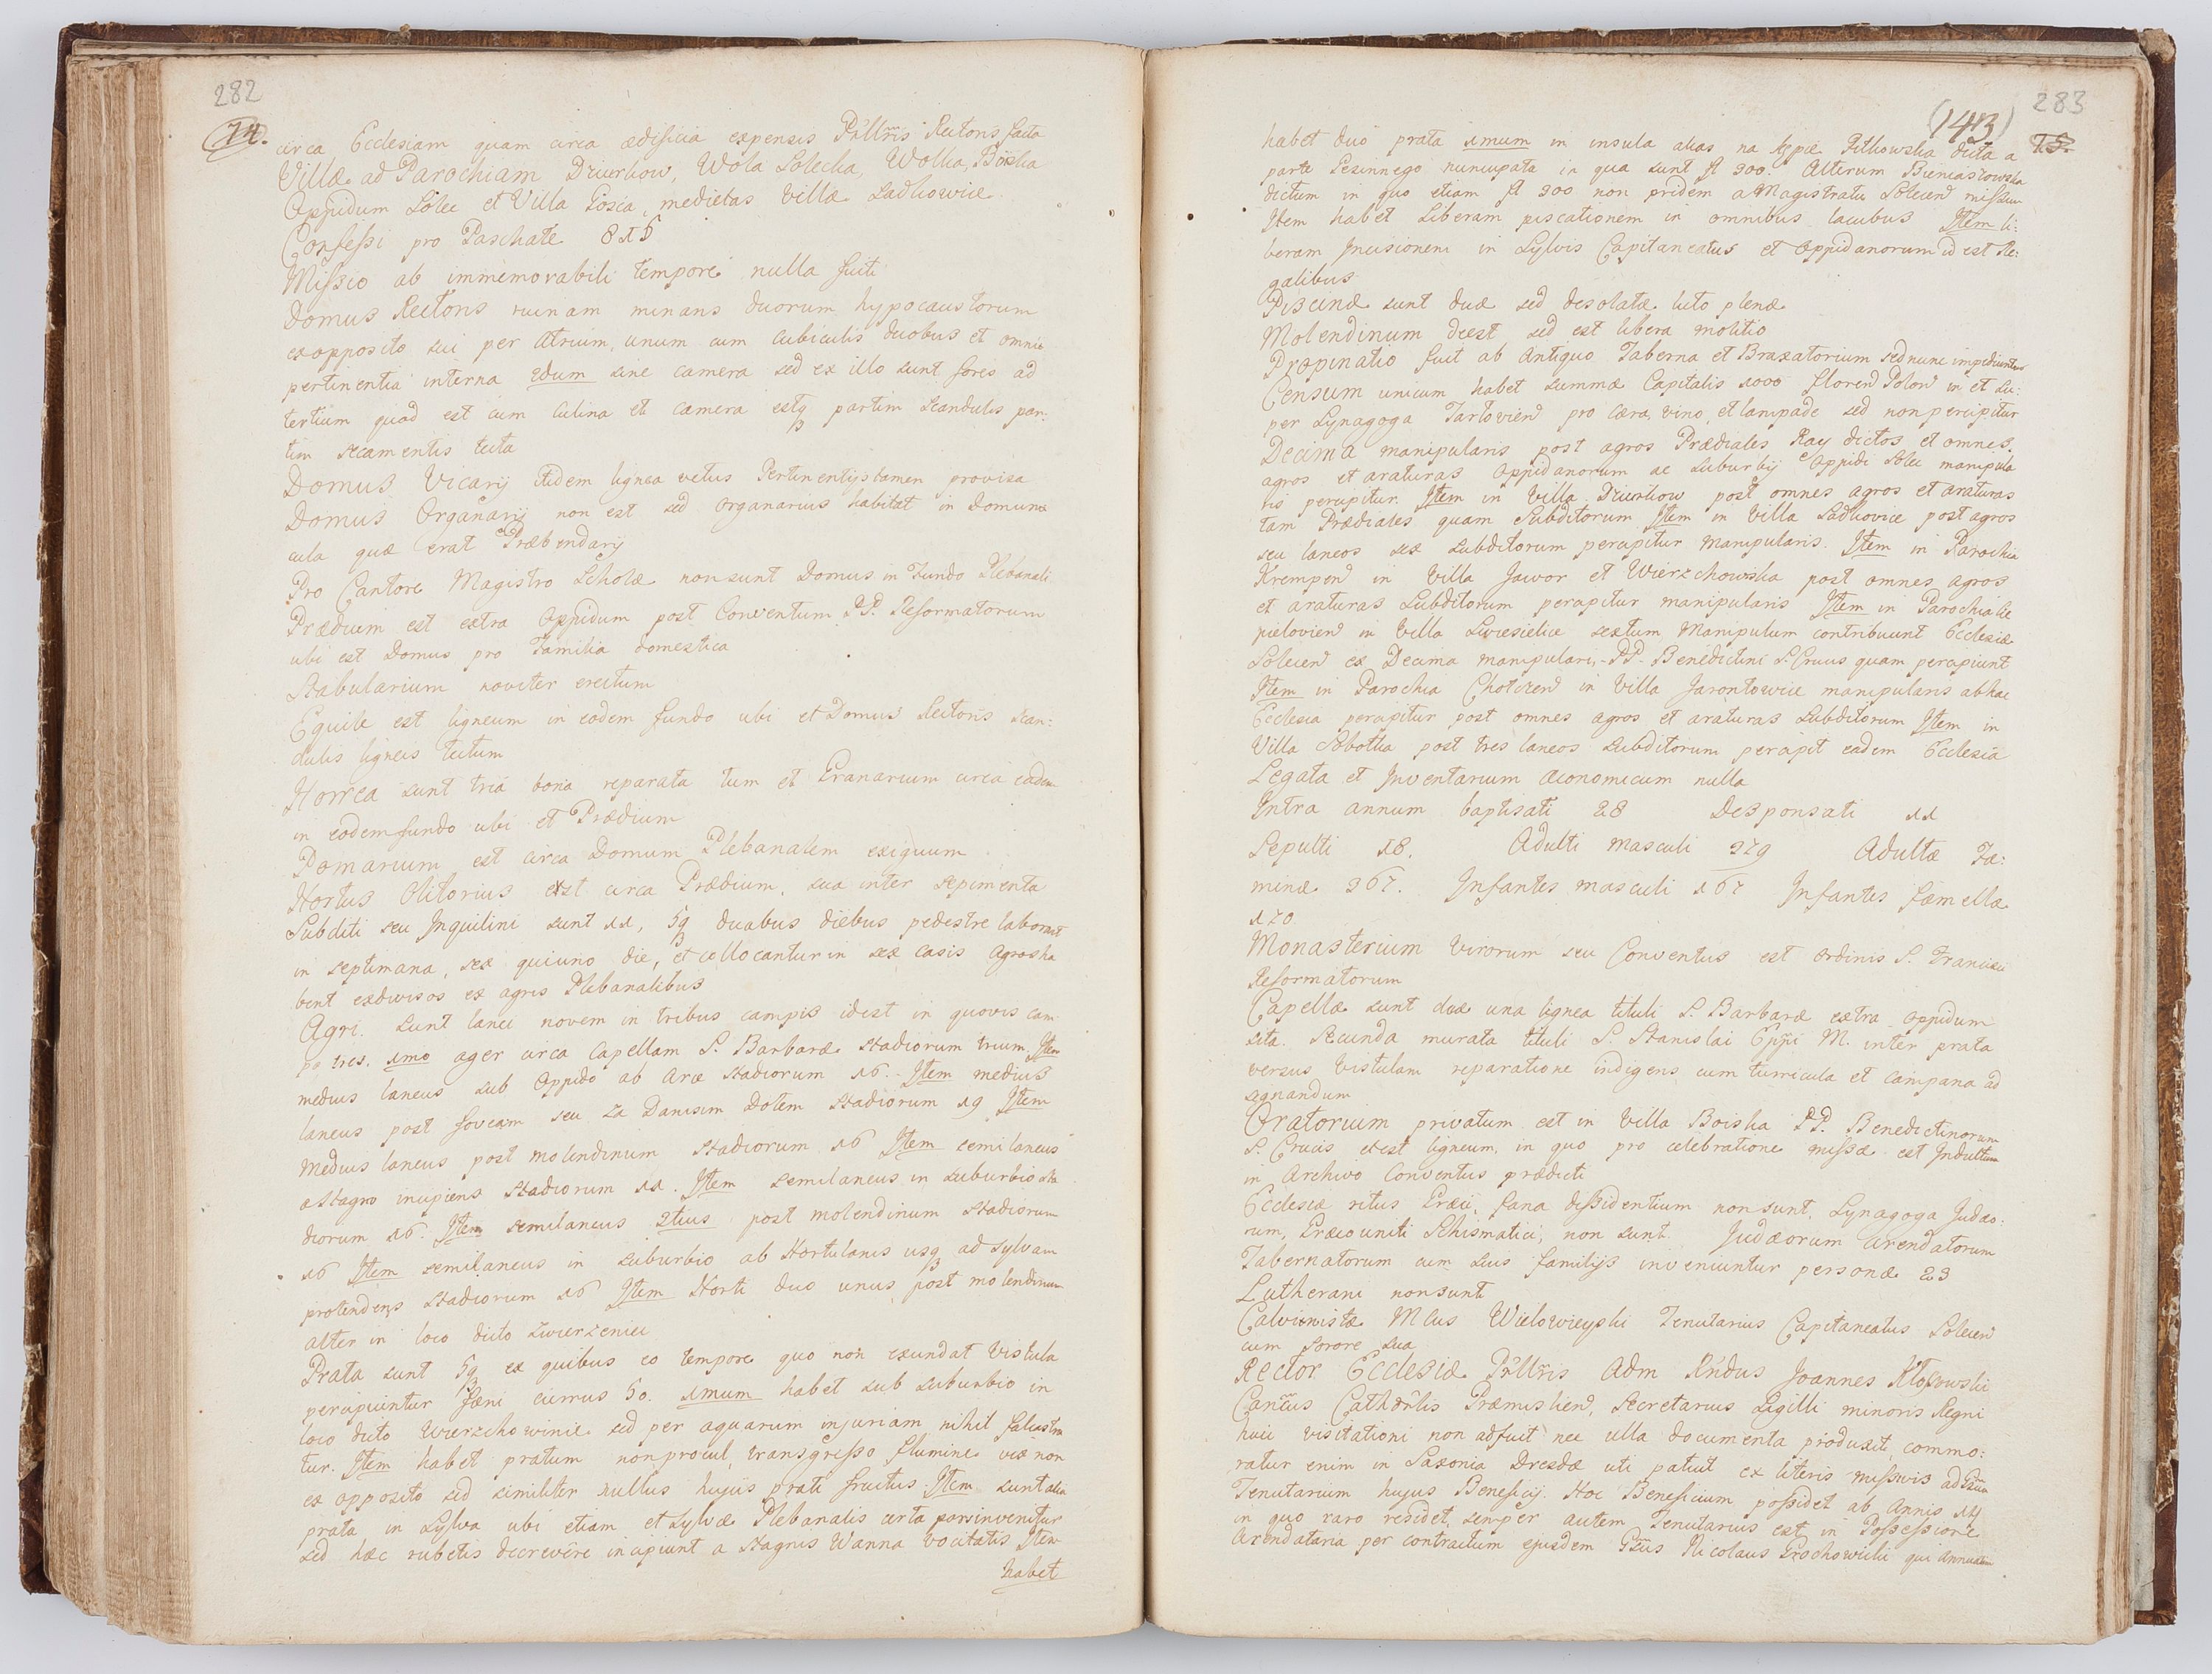 282
74.
circa Ecclesiam quam circa ædificia expensis Pńllris Rectoris facta
Villæ ad Parochiam Dziurkow, Wola Solecka, Wolka, Boiska
Oppidum Solec et Villa Gosca, medietas villæ Sadkowice
Confessi pro Paschate 815
Missio ab immemorabili tempore nulla fuit
Domus Rectoris ruinam minans duorum hypocaustorum
ex opposito sui per Atrium, unum cum cubiculis duobus et omni
pertinentia interna 2dum sine camera sed ex illo sunt fores ad
tertium quod est cum Culina et camera estq partim Scandulis par:
tim secamentis tecta
Domus Vicarij itidem lignea vetus Pertinentijs tamen provisa
Domus Organarij non est sed Organarius habitat in Domun
cula quæ erat Præbendarij
Pro Cantore Magistro Scholæ non sunt Domus in Fundo Plebanali
Prædium est extra Oppidum post Conventum PP. Reformatorum
ubi est Domus pro Familia domestica
Stabularium noviter erectum
Equile est ligneum in eodem fundo ubi et Domus Rectoris scan:
dulis ligneis tectum
Horrea sunt tria bona reparata tum et Granarium circa eadem
in eodem fundo ubi et Prædium
Pomarium est circa Domum Plebanalem exiguum
Hortus Olitorius est circa Prædium, sua inter sepimenta
Subditi seu Inquilini sunt 11, 5q duabus diebus pedestre laborant
in septimana, sex qui uno die, et collocantur in sex casis Agros ha
bent exdivisos ex agris Plebanalibus
Agri. Sunt lanei novem in tribus campis idest in quovis cam
po tres. 1mo ager circa Capellam S. Barbaræ stadiorum trium, Item
medius laneus sub Oppido ab Arce stadiorum 16. Item medius
laneus post foveam seu za Danisim Dotem stadiorum 19 Item
medius laneus post molendinum stadiorum 16 Item semilaneus
a Stagno incipiens stadiorum 11. Item semilaneus in suburbio sta
diorum 16. Item semilaneus 2tius post molendinum stadiorum
16 Item semilaneus in suburbio ab Hortulanis usq ad sylvam
protendens stadiorum 16 Item Horti duo unus post molendinum
alter in loco dicto Zwierzeniec
Prata sunt 5q ex quibus eo tempore quo non exundat Vistula
percipiuntur fæni currus 50. 1mum habet sub suburbio in
loco dicto Wierzchowinie sed per aquarum injuriam nihil falcastra
tur. Item habet pratum non procul, transgresso flumine viæ non
ex opposito sed similiter nullus hujus prati fructus. Item sunt alia
prata in Sylva ubi etiam et Sylvæ Plebanalis certa pars invenitur
sed hæc rubetis decrevêre incipiunt a Stagnis Wanna vocitatis Item
habet
283
(143)
75.
habet duo prata 1mum in insula alias na Kępæ Pitkowska dicta a
parte Pesinnego nuncupata in qua sunt fl 300. Alterum Bieniaszowska
dictum in quo etiam fl 300 non pridem a Magistratu Solecień missum
Item habet Liberam piscationem in omnibus lacubus Item li:
beram Incisionem in Sylvis Capitaneatus et Oppidanorum id est Re:
galibus
Piscinæ sunt duæ sed desolatæ luto plenæ
Molendinum deest sed est libera molitio
Propinatio fuit ab Antiquo Taberna et Braxatorium sed nunc impediuntur
Censum unicum habet summæ Capitalis 1000 floren Polon in et su:
per Synagoga Tarlovien pro cæra, vino, et lampade sed non percipitur
Decima manipularis post agros Prædiales Ray dictos et omnes
agros et araturas Oppidanorum ac Suburbij Oppidi Solec manipula
ris percipitur. Item in Villa Dziurkow post omnes agros et araturas
tam Prædiales quam Subditorum Item in Villa Sadkovice post agros
seu laneos sex subditorum percipitur manipularis. Item in Parochia
Krempen in Villa Jawor et Wierzchowiska post omnes agros
et araturas Subditorum percipitur manipularis Item in Parochia Cie
pielovien in Villa Swiesielice sextum Manipulum contribuunt Ecclesiæ
Solecien ex Decima manipulari, PP. Benedictini S. Crucis quam percipiunt
Item in Parochia Chotczen in Villa Jarontowice manipularis ab hac
Ecclesia percipitur post omnes agros et araturas Subditorum Item in
Villa Sobotka post tres laneos Subditorum percipit eadem Ecclesia
Legata et Inventarium œconomicum nulla
Intra annum baptisati 28 Desponsati 11
Sepulti 18. Adulti masculi 279 Adultæ Fæ:
minæ 267. Infantes masculi 167 Infantes fæmellæ
170
Monasterium Virorum seu Conventus est Ordinis S. Francisci
Reformatorum
Capellæ sunt duæ una lignea tituli S. Barbaræ extra Oppidum
sita. Secunda murata tituli S. Stanislai Eppi M. inter prata
versus Vistulam reparatione indigens cum turricula et campana ad
signandum
Oratorium privatum est in Villa Boiska PP. Benedictinorum
S. Crucis etest ligneum, in quo pro celebratione missæ est Indultum
in Archivo Conventus prædicti
Ecclesiæ ritus Græci, fana dissidentium non sunt, Synagoga Judæo:
rum, Græco uniti Schismatici, non sunt. Judæorum Arendatorum
Tabernatorum cum suis familijs inveniuntur personæ 23
Lutherani non sunt
Calvinistæ Mlus Wielowieyski Tenutarius Capitaneatus Solecien
cum sorore sua
Rector Ecclesiæ Pńllris Adm Rńdus Joannes Kłossowski
Cancus Cathdrlis Præmislien, Secretarius Sigilli minoris Regni
huic visitationi non adfuit nec ulla documenta produxit, commo:
ratur enim in Saxonia Dresdæ uti patuit ex literis missivis ad Gsum
Tenutarium hujus Beneficij. Hoc Beneficium possidet ab Annis 14
in quo raro residet, semper autem Tenutarius est in Possessione
Arendataria per contractum ejusdem Gsus Nicolaus Grochowicki qui Annuatim